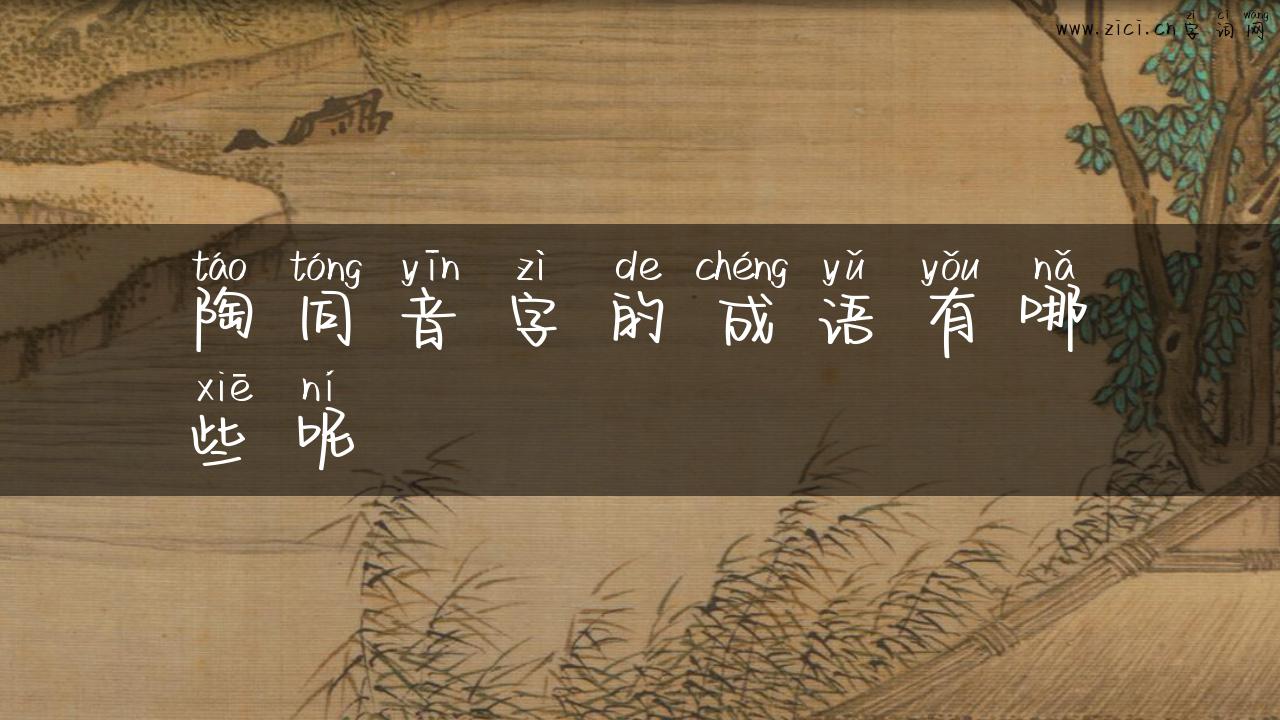 zì cí wǎng
www.zici.cn字词网
táo tóng yīn zì de chéng yǔ yǒu nǎ
陶同音字的成语有哪
xiē ní
些呢